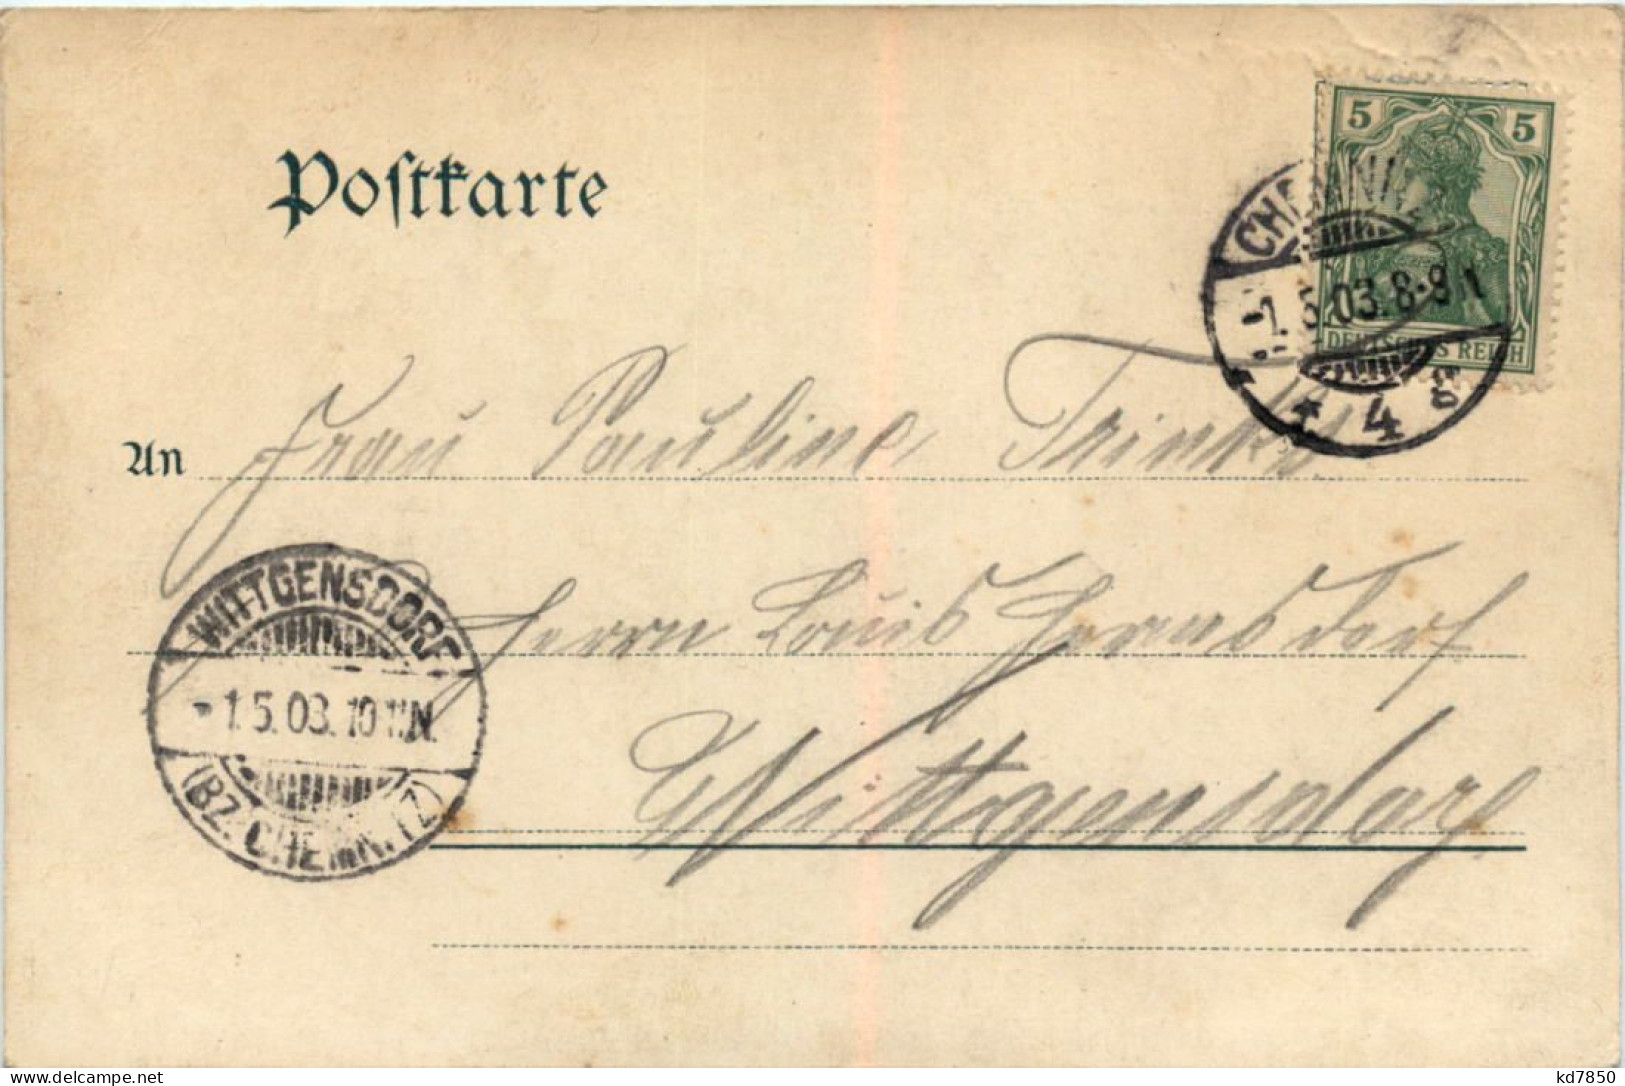 Postkarte
5 5
DEUTSCHES REICH
CHEMNITZ
-1.5.03.8-9N
* 4 g
An Frau Pauline Trinks
Herrn Louis Hermsdorf
Wittgensdorf
WITTGENSDORF
-1.5.03.10-11N.
(BZ. CHEMNITZ)
delcampe.net
kd7850